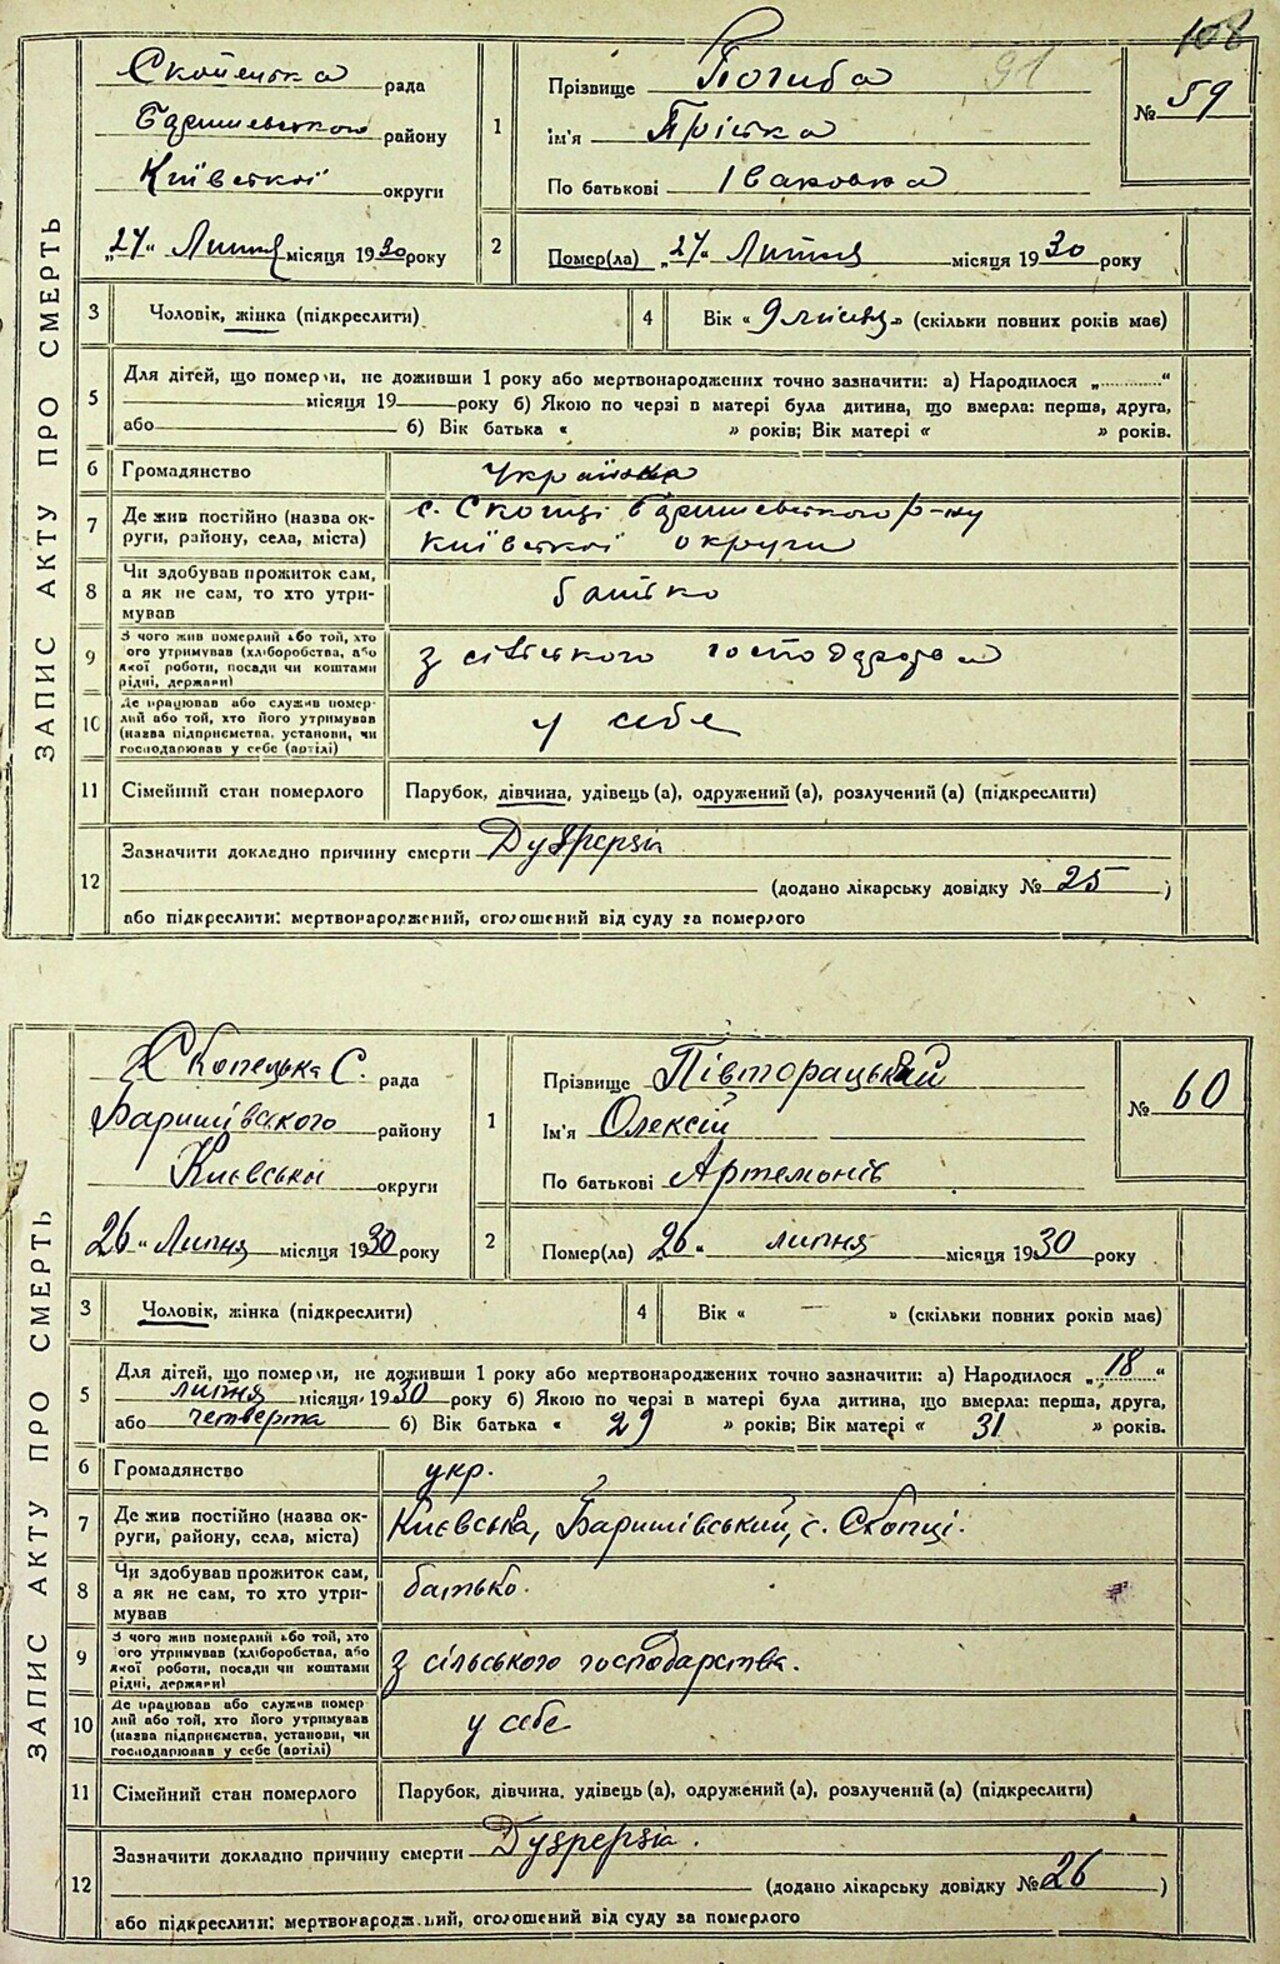 108
91
ЗАПИС АКТУ ПРО СМЕРТЬ
Скопецька рада
Баришевського району
Київської округи
„24“ Липня місяця 1930 року
1
Прізвище Погиба
ім'я Пріська
По батькові Івановна
№ 59
2
Помер(ла) „24“ Липня місяця 1930 року
3 Чоловік, жінка (підкреслити)
4 Вік « 9 місяц » (скільки повних років має)
5 Для дітей, що померли, не доживши 1 року або мертвонароджених точно зазначити: а) Народилося „ “
місяця 19 року б) Якою по черзі в матері була дитина, що вмерла: перша, друга,
або б) Вік батька « » років; Вік матері « » років.
6 Громадянство українка
7 Де жив постійно (назва ок-
руги, району, села, міста)
с. Скопці Баришевського р-ну
Київської округи
8 Чи здобував прожиток сам,
а як не сам, то хто утри-
мував
батько
9 З чого жив померлий або той, хто
ого утримував (хліборобства, або
якої роботи, посади чи коштами
рідні, держави)
з сільського господарства
10 Де працював або служив помер-
лий або той, хто його утримував
(назва підприємства, установи, чи
господарював у себе (артілі)
у себе
11 Сімейний стан померлого Парубок, дівчина, удівець (а), одружений (а), розлучений (а) (підкреслити)
12 Зазначити докладно причину смерти Dyspepsia
(додано лікарську довідку № 25 )
або підкреслити: мертвонароджений, оголошений від суду за померлого
ЗАПИС АКТУ ПРО СМЕРТЬ
Скопецька С. рада
Баришівського району
Києвської округи
26 “ Липня місяця 1930 року
1
Прізвище Півторацький
Ім'я Олексій
По батькові Артемонів
№ 60
2
Помер(ла) „26“ липня місяця 1930 року
3 Чоловік, жінка (підкреслити)
4 Вік « — » (скільки повних років має)
5 Для дітей, що померли, не доживши 1 року або мертвонароджених точно зазначити: а) Народилося „ 18 “
липня місяця 1930 року б) Якою по черзі в матері була дитина, що вмерла: перша, друга,
або четверта б) Вік батька « 29 » років; Вік матері « 31 » років.
6 Громадянство укр.
7 Де жив постійно (назва ок-
руги, району, села, міста)
Києвська, Баришівський, с. Скопці.
8 Чи здобував прожиток сам,
а як не сам, то хто утри-
мував
батько.
9 З чого жив померлий або той, хто
ого утримував (хліборобства, або
якої роботи, посади чи коштами
рідні, держави)
з сільського господарства.
10 Де працював або служив помер
лий або той, хто його утримував
(назва підприємства, установи, чи
господарював у себе (артілі)
у себе
11 Сімейний стан померлого Парубок, дівчина, удівець (а), одружений (а), розлучений (а) (підкреслити)
12 Зазначити докладно причину смерти Dyspepsia.
(додано лікарську довідку № 26 )
або підкреслити: мертвонароджений, оголошений від суду за померлого